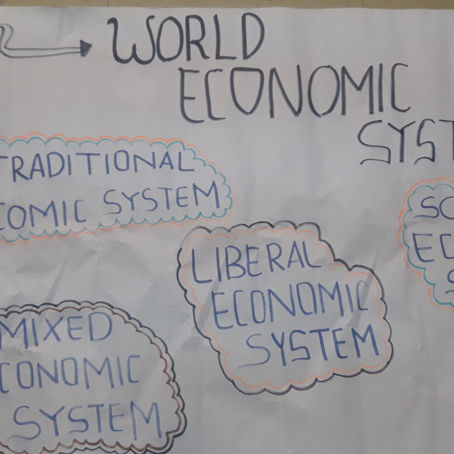 WORLD
ECONOMIC
SYST
TRADITIONAL
COMIC SYSTEM
SO
EC
S
LIBERAL
ECONOMIC
SYSTEM
MIXED
CONOMIC
SYSTEM